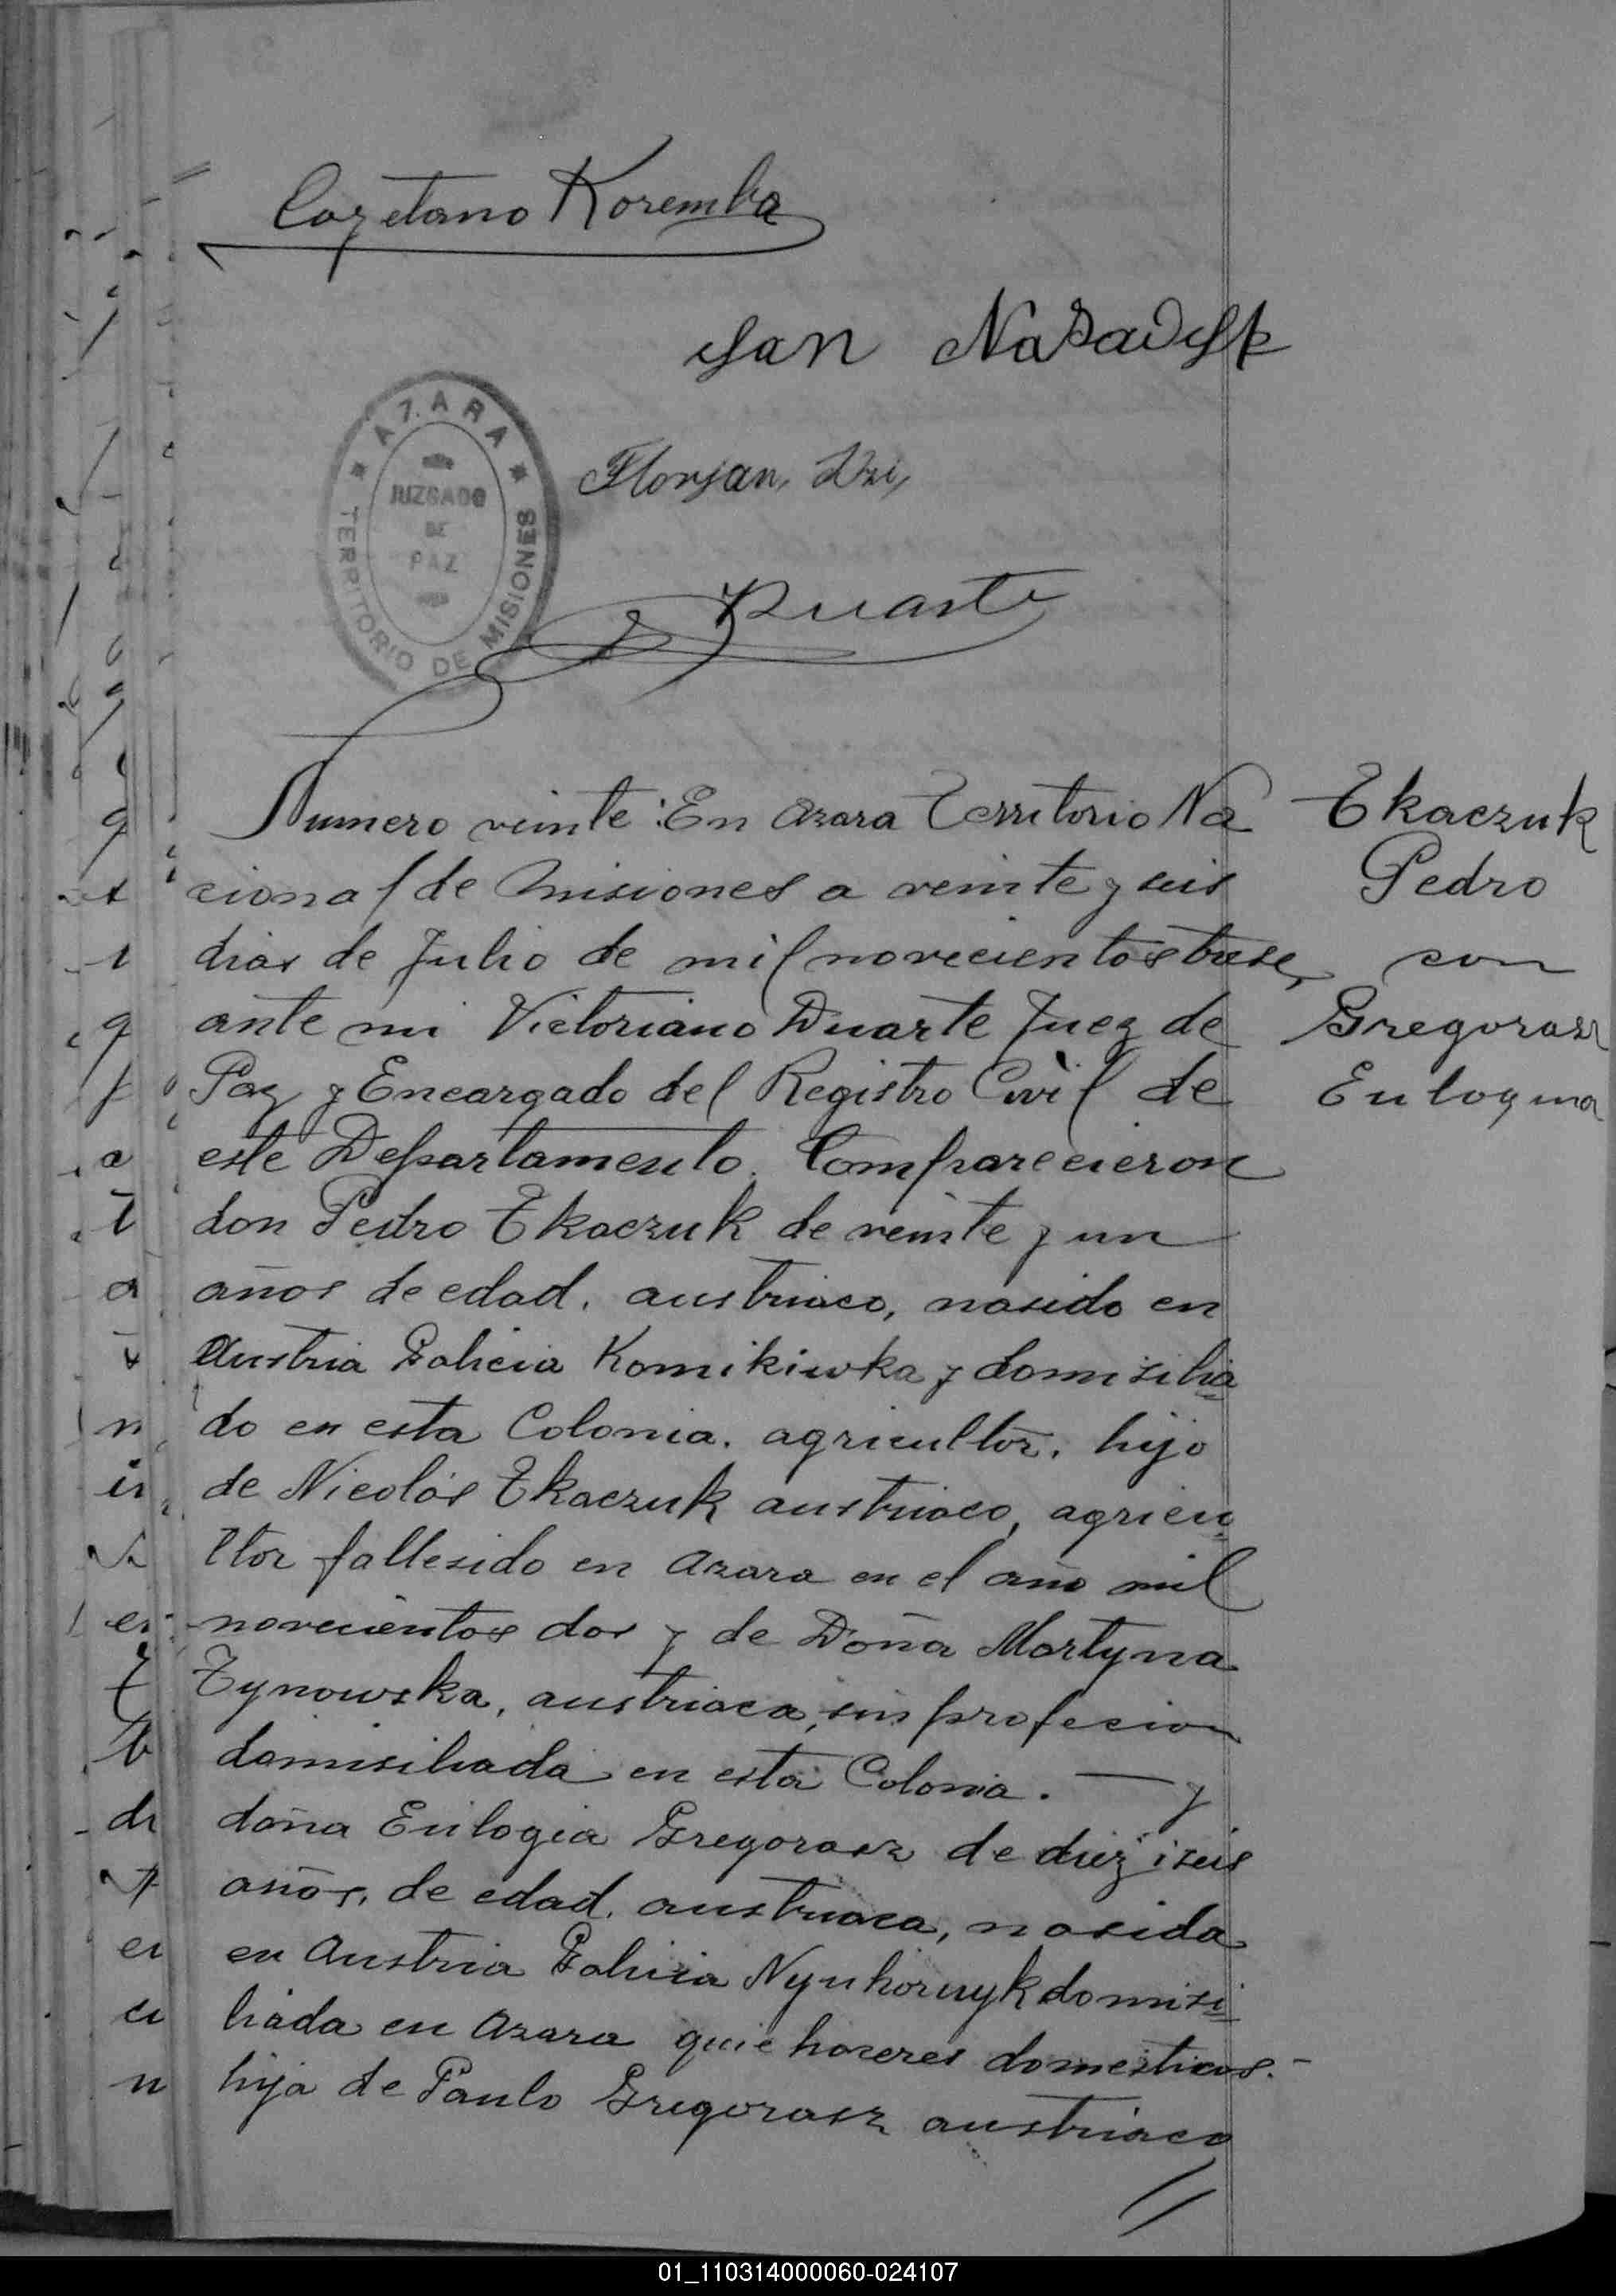 Cayetano Koremba
Jan Nazadyk
AZARA
JUZGADO
DE
PAZ
TERRITORIO DE MISIONES
Florjan, Dzi,
Duarte
Numero veinte: En Azara Territorio Na
cional de Misiones a veinte y seis
dias de Julio de mil novecientos trese,
ante mi Victoriano Duarte Juez de
Paz y Encargado del Registro Civil de
este Departamento. Comparecieron
don Pedro Tkaczuk de veinte y un
años de edad, austriaco, nasido en
Austria Galicia Komikiwka y domisilia
do en esta Colonia, agricultor, hijo
de Nicolás Tkaczuk austriaco, agricu
ltor fallesido en Azara en el año mil
novecientos dos y de Doña Martyna
Tynowska, austriaca, sin profecion
domisiliada en esta Colonia. — y
doña Eulogia Gregorasz de diez i seis
años, de edad, austriaca, nasida
en Austria Galicia domisi
liada en Azara quie haseres domesticos.-
hija de Paulo Gregorasz austriaco
Tkaczuk
Pedro
con
Gregorasz
Eulogina
01_110314000060-024107